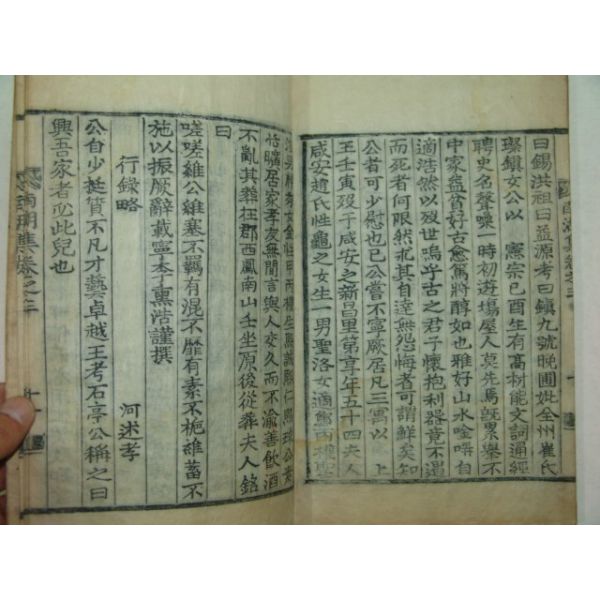 曰錫洪祖曰益源考曰鎭九號晩圃妣全州崔氏
璨鎭女公以 憲宗己酉生有高材能文詞通經
聘史名聲噪一時初遊場屋人莫先焉旣累擧不
中家益貧好古愈篤將醇如也雅好山水唫嘯自
適浩然以歿世嗚乎古之君子懷抱利器竟不遇
而死者何限然求其自達無怨悔者可謂鮮矣知
公者可少慰也已公嘗不寧厥居凡三
王壬寅歿于咸安之新昌里第享年五十四夫人
咸安趙氏性龜之女生一男聖洛女適
恬 居家孝友無間言與人交久而不渝善飮酒
不亂其葬在郡西鳳南山壬坐原後從葬夫人銘
曰
嗟嗟維公維蹇不羈有混不靡有素不梔維蓄不
施以振厥辭載寧李熏浩謹撰
行錄略 河述孝
公自少挺質不凡才藝卓越王考石亭公稱之曰
興吾家者必此兒也
集卷之三